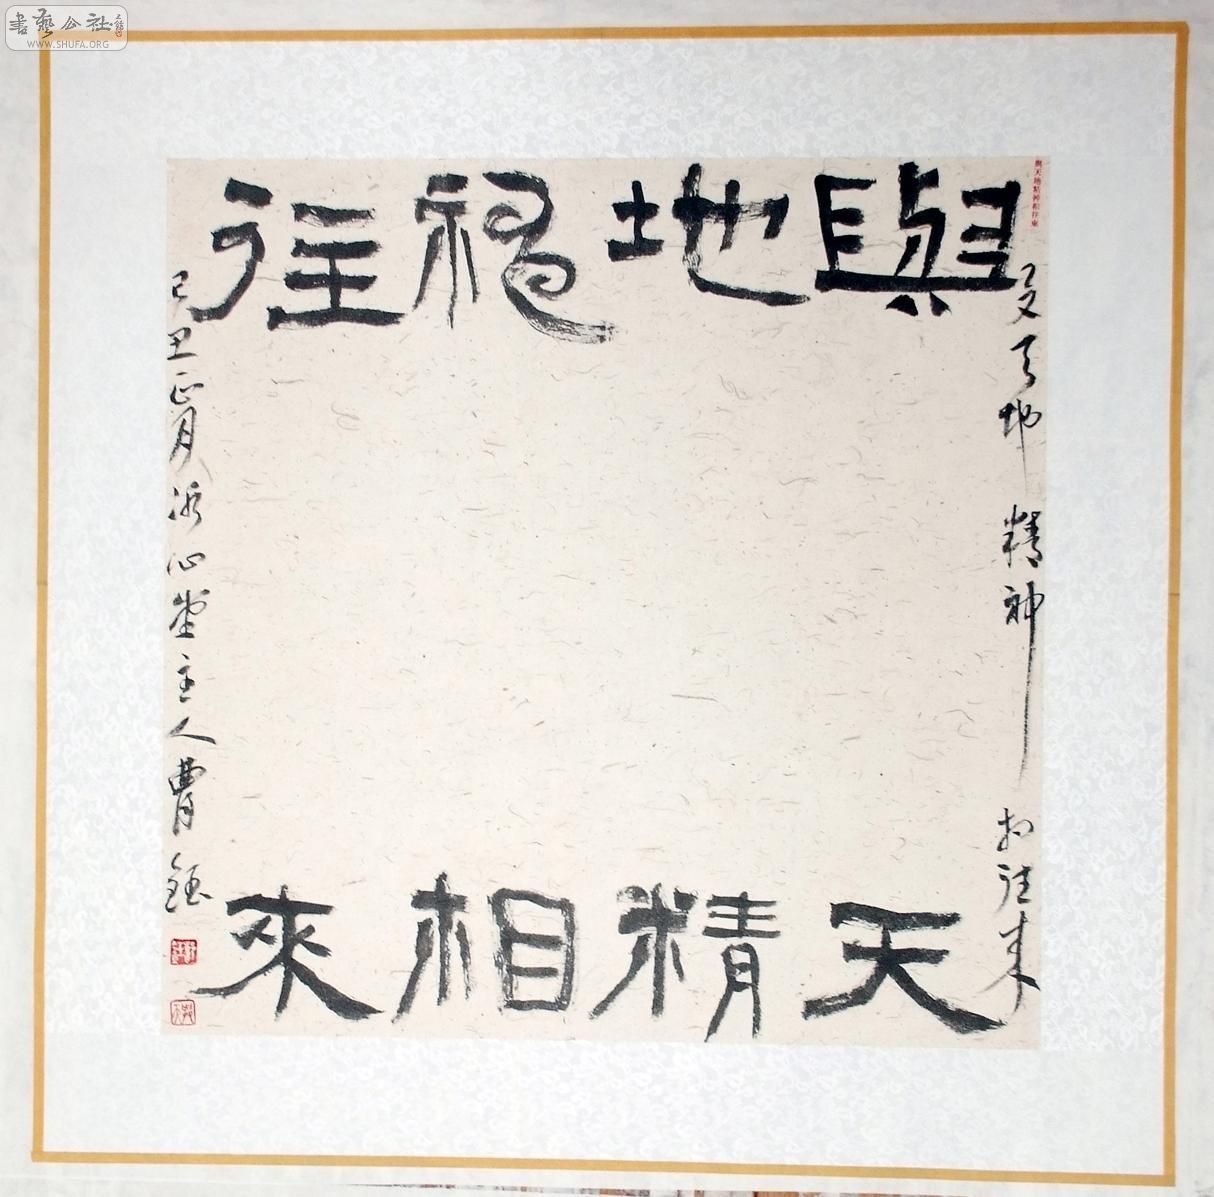 書藝公社
WWW.SHUFA.ORG
與天
地精
神相
往來
與天地精神相往來
與天地精神相往来
己丑正月冰心堂主人曹鈺